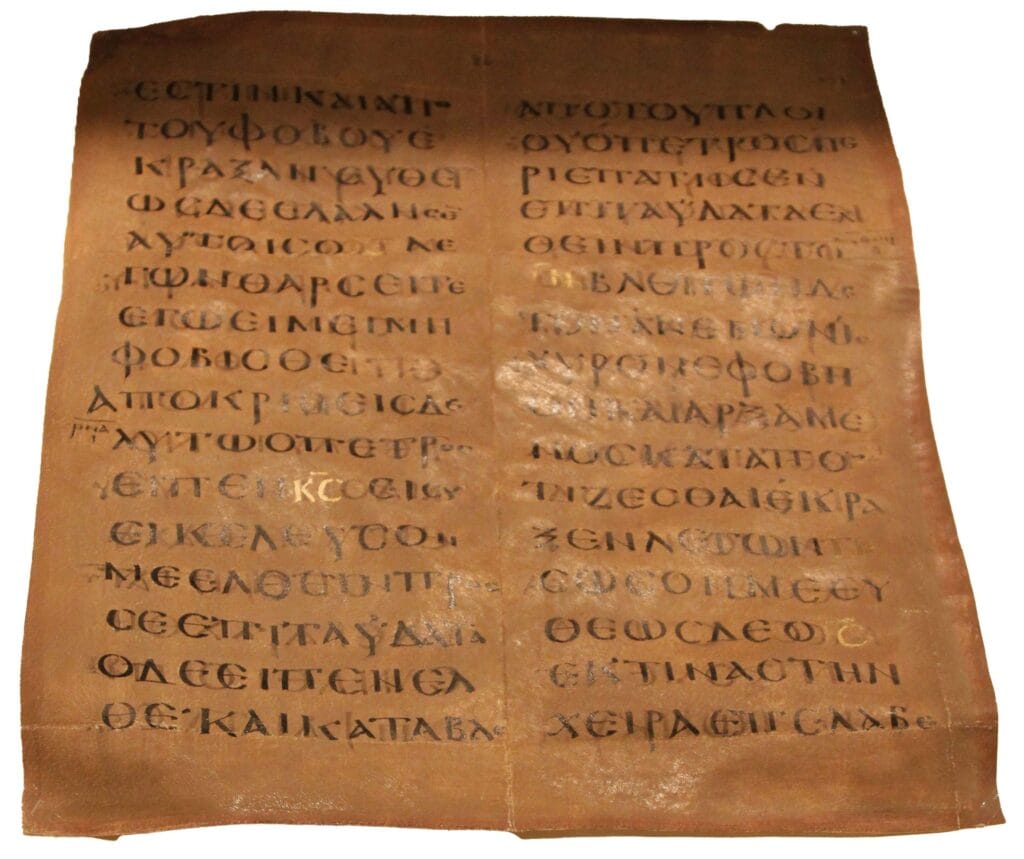 ΕϹΤΙΝΚΑΙΑΠΟ
ΤΟΥΦΟΒΟΥΕ
ΚΡΑΞΑΝΕΥΘΕ
ΩϹΔΕΕΛΑΛΗϹΕ
ΑΥΤΟΙϹΟ ΛΕ
ΓΩΝΘΑΡϹΕΙΤΕ
ΕΓΩΕΙΜΕΙΜΗ
ΦΟΒΙϹΘΕ
ΑΠΟΚΡΙΘΕΙϹΔΕ
ΑΥΤΩΟΠΕΤΡΟϹ
ΕΙΠΕΝΚ̅Ϲ̅
ΕΙΚΕΛΕΥϹΟΝ
ΜΕΕΛΘΕΙΝΠΡΟϹ
ϹΕΕΠΙΤΑΫΔΑΤΑ
ΟΔΕΕΙΠΕΝΕΛ
ΘΕΚΑΙΚΑΤΑΒΑϹ
ΑΠΟΤΟΥΠΛΟΙ
ΟΥΟΠΕΤΡΟϹΠΕ
ΡΙΕΠΑΤΗϹΕΝ
ΕΠΙΤΑΫΔΑΤΑΕΛ
ΘΕΙΝΠΡΟϹΤΟ
Ι̅Ν̅ΒΛΕΠΩΝΔΕ
ΤΟΝΑΝΕΜΟΝΪ
ϹΧΥΡΟΝΕΦΟΒΗ
ΘΗΚΑΙΑΡΞΑΜΕ
ΝΟϹΚΑΤΑΠΟ
ΤΙΖΕϹΘΑΙΕΚΡΑ
ΞΕΝΛΕΓΩΝΚΕ
ϹΩϹΟΝΜΕΕΥ
ΘΕΩϹΔΕΟΙ̅Ϲ̅
ΕΚΤΙΝΑϹΤΗΝ
ΧΕΙΡΑΕΠΕΛΑΒΕ